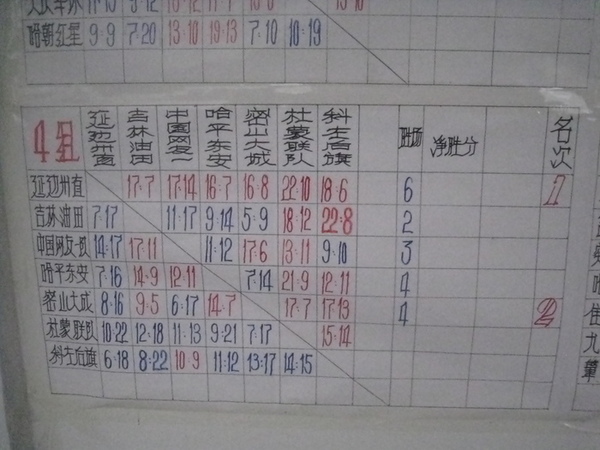 哈朝红星 9:9 7:20 13:10 19:13 7:10 10:19
4组 延边州直 吉林油田 中国网友二 哈平东安 密山大成 杜蒙联队 科左后旗 胜场 净胜分 名次
延边州直 17:7 17:14 16:7 16:8 22:10 18:6 6 1
吉林油田 7:17 11:17 9:14 5:9 18:12 22:8 2
中国网友二队 14:17 17:11 11:12 17:6 13:11 9:10 3
哈平东安 7:16 14:9 12:11 7:14 21:9 12:11 4
密山大成 8:16 9:5 6:17 14:7 17:7 17:13 4 2
杜蒙联队 10:22 12:18 11:13 9:21 7:17 15:14
科左后旗 6:18 8:22 10:9 11:12 13:17 14:15